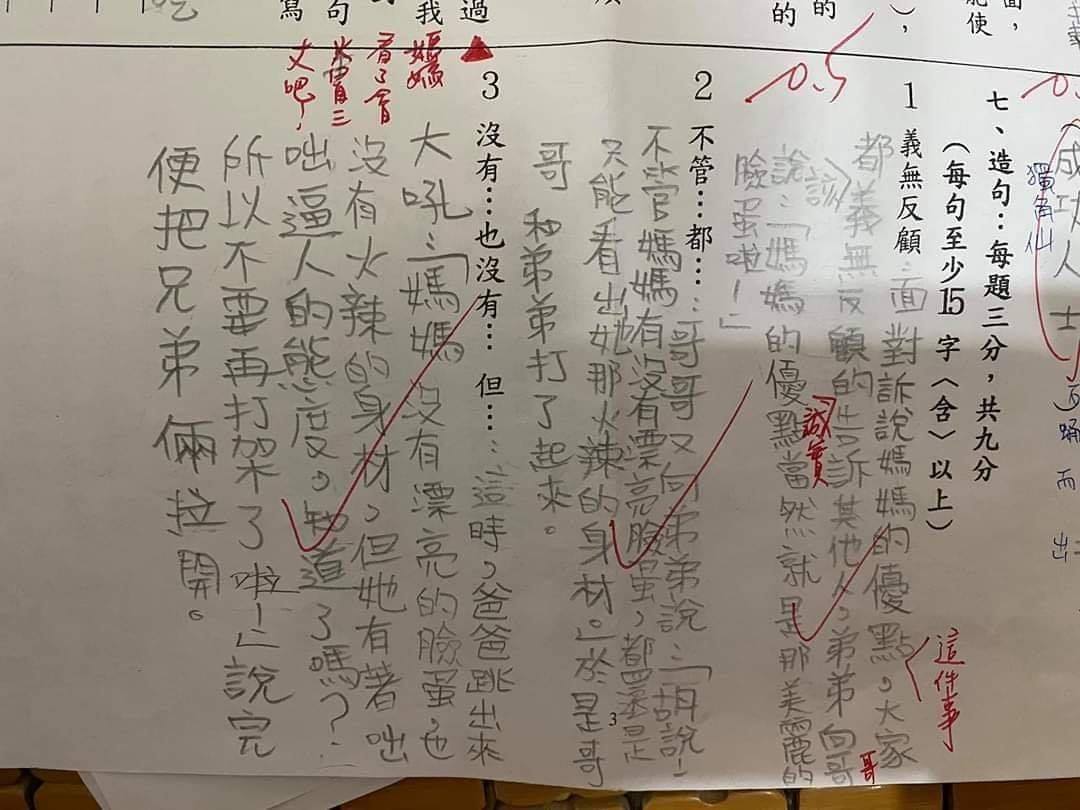 成功人士
獨角仙
而出
0.5
七、造句：每題三分，共九分
（每句至少15字〈含〉以上）
1 義無反顧：面對訴說媽媽的優點，大家
這件事
都義無反顧的告訴其他人，弟弟向哥
哥
誠實
說：「媽媽的優點當然就是那美麗的
臉蛋啦！」
2 不管…都…：哥哥又向弟弟說：「胡說！
不管媽媽有沒有漂亮臉蛋，都還是
只能看出她那火辣的身材。」於是哥
哥和弟弟打了起來。
3 沒有…也沒有… 但…：這時，爸爸跳出來
大吼：「媽媽沒有漂亮的臉蛋，也
沒有火辣的身材，但她有著咄
咄逼人的態度。知道了嗎？
所以不要再打架了啦！」說完
便把兄弟倆拉開。
媽媽
看了會
火冒三
丈吧！
3